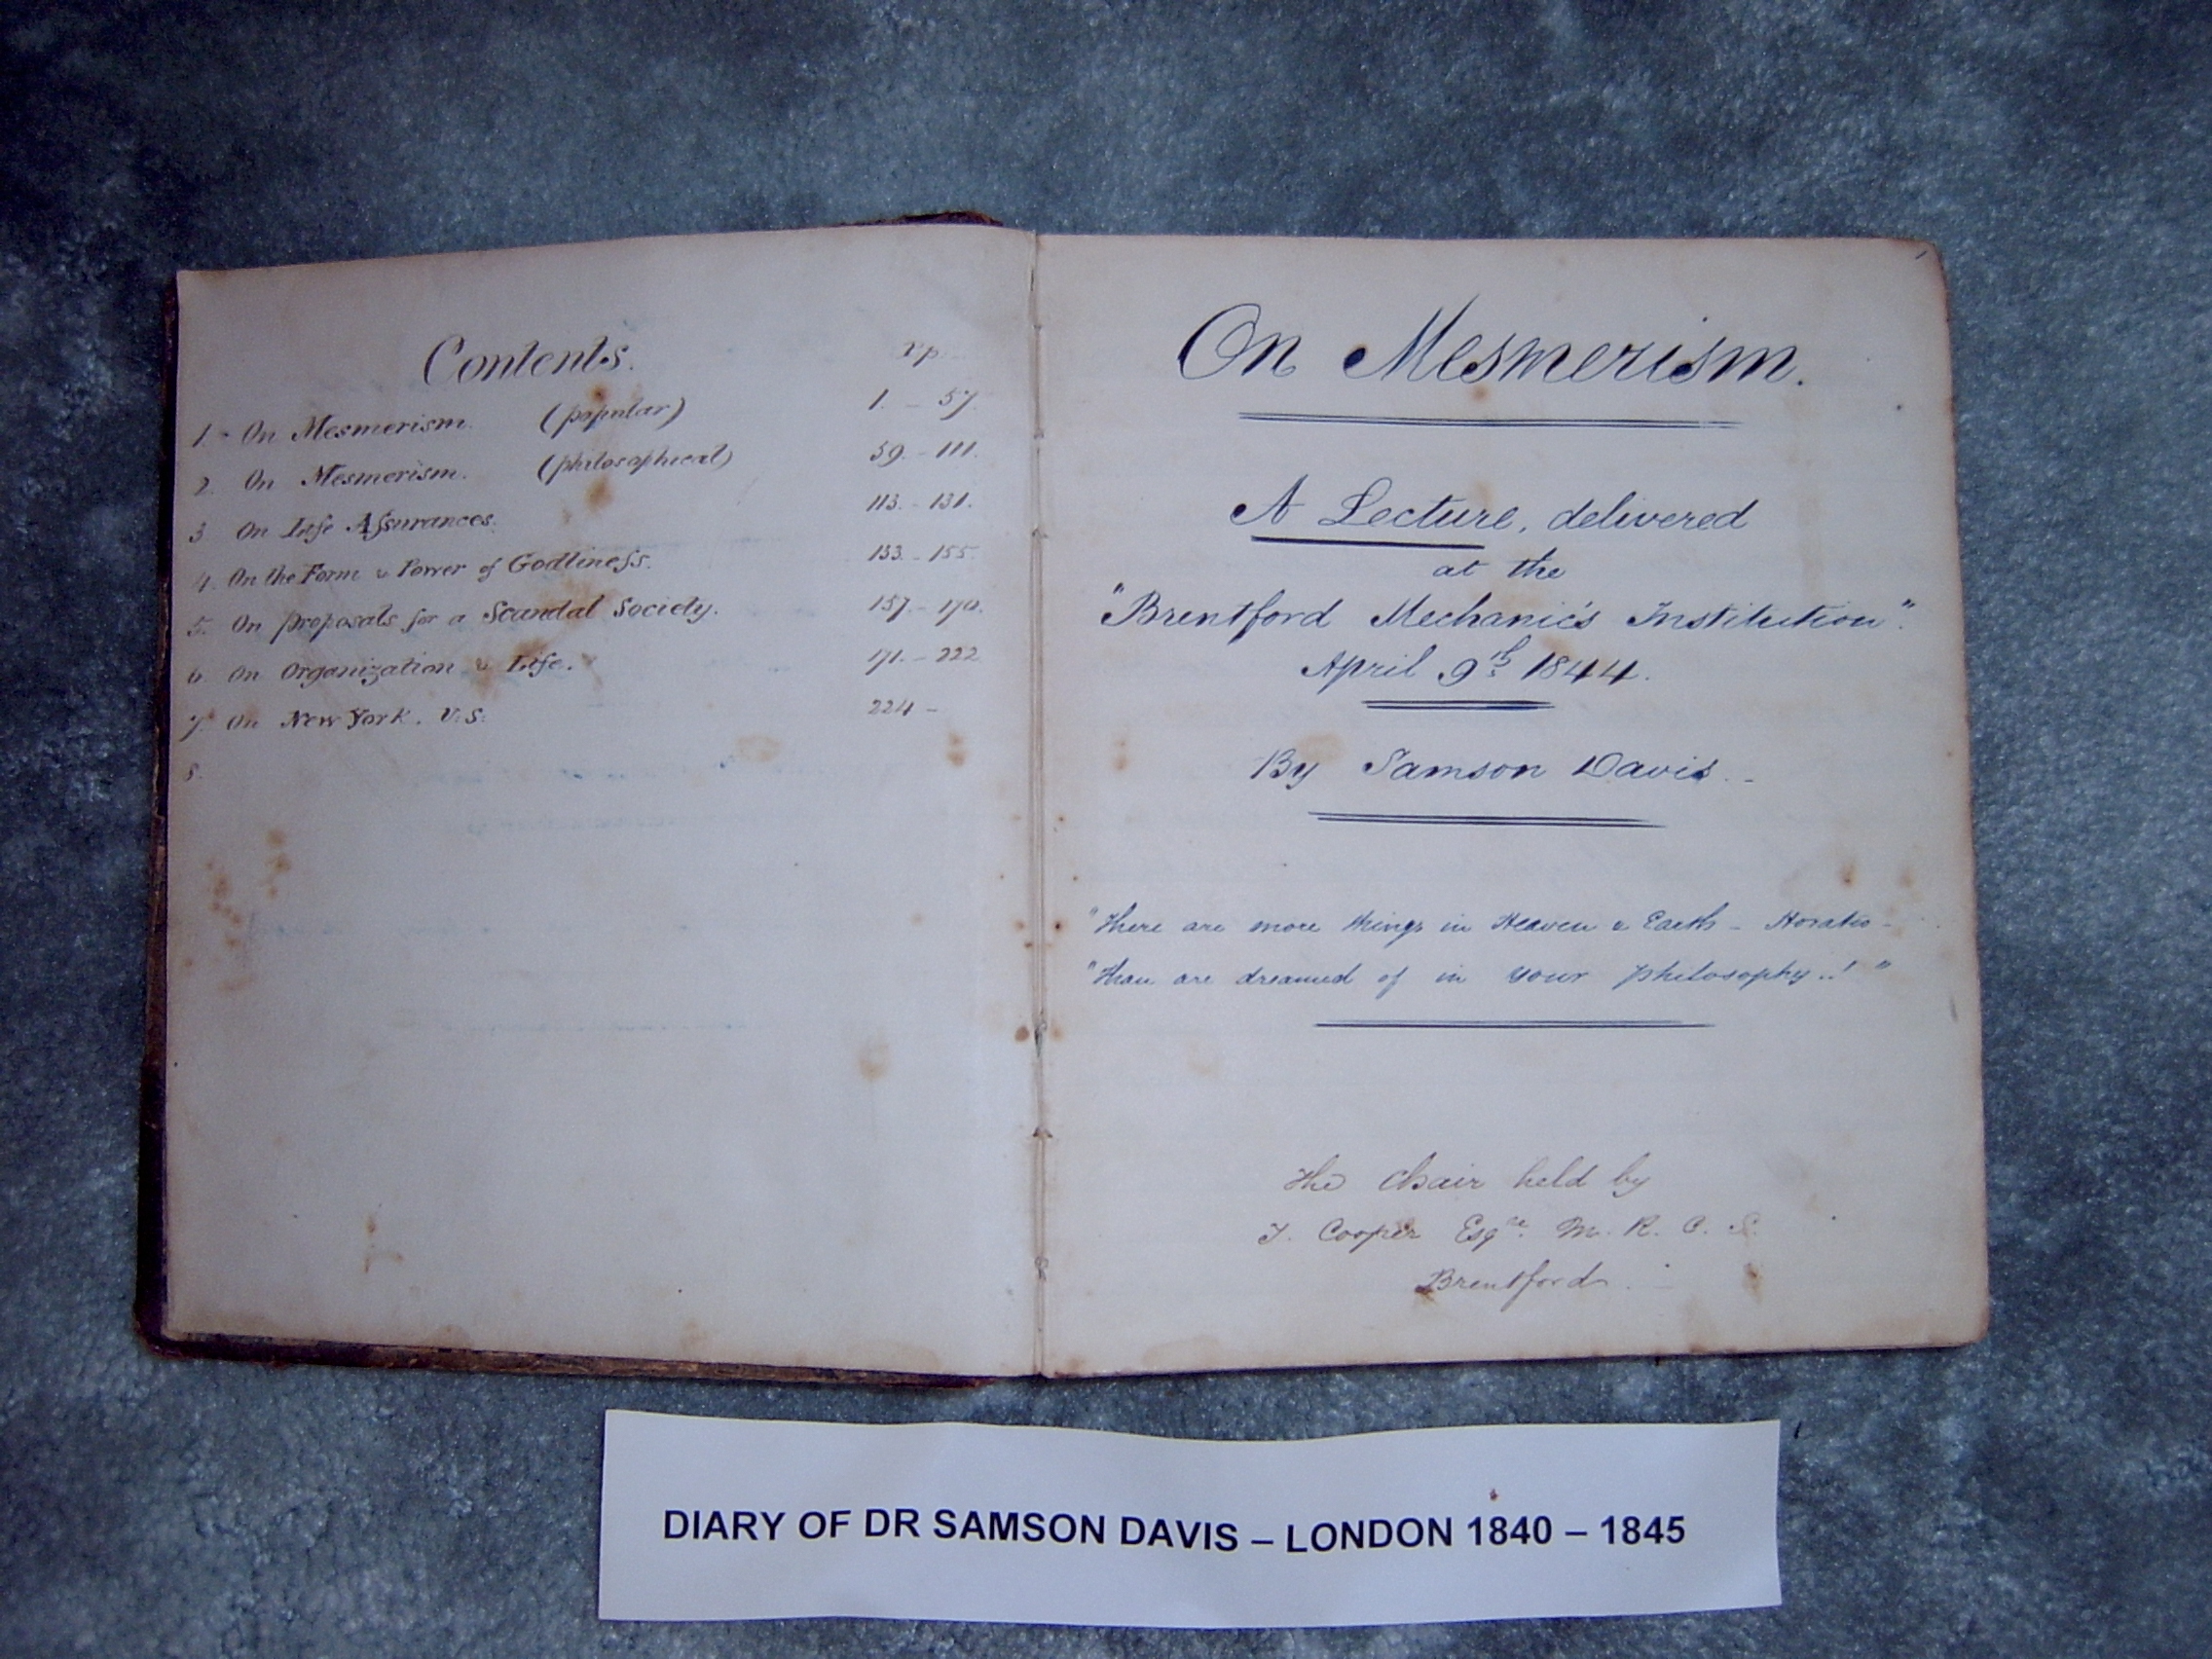 Contents. pp.
1. On Mesmerism. (popular) 1. - 57.
2. On Mesmerism. (philosophical) 59. - 111.
3 On Life Assurances. 113. - 131.
4. On the Form & Power of Godliness. 133. - 155.
5. On Proposals for a Scandal Society. 157. - 170.
6 On Organization & Life. 171. - 222
7 On New York. U.S. 224 -
8.
1
On Mesmerism.
A Lecture, delivered
at the
"Brentford Mechanic's Institution".
April 9th 1844.
By Samson Davis.
"There are more things in Heaven & Earth - Horatio -
"Than are dreamed of in your philosophy..!"
The Chair held by
Cooper Esqre. M. R. C. S.
Brentford.
DIARY OF DR SAMSON DAVIS – LONDON 1840 – 1845